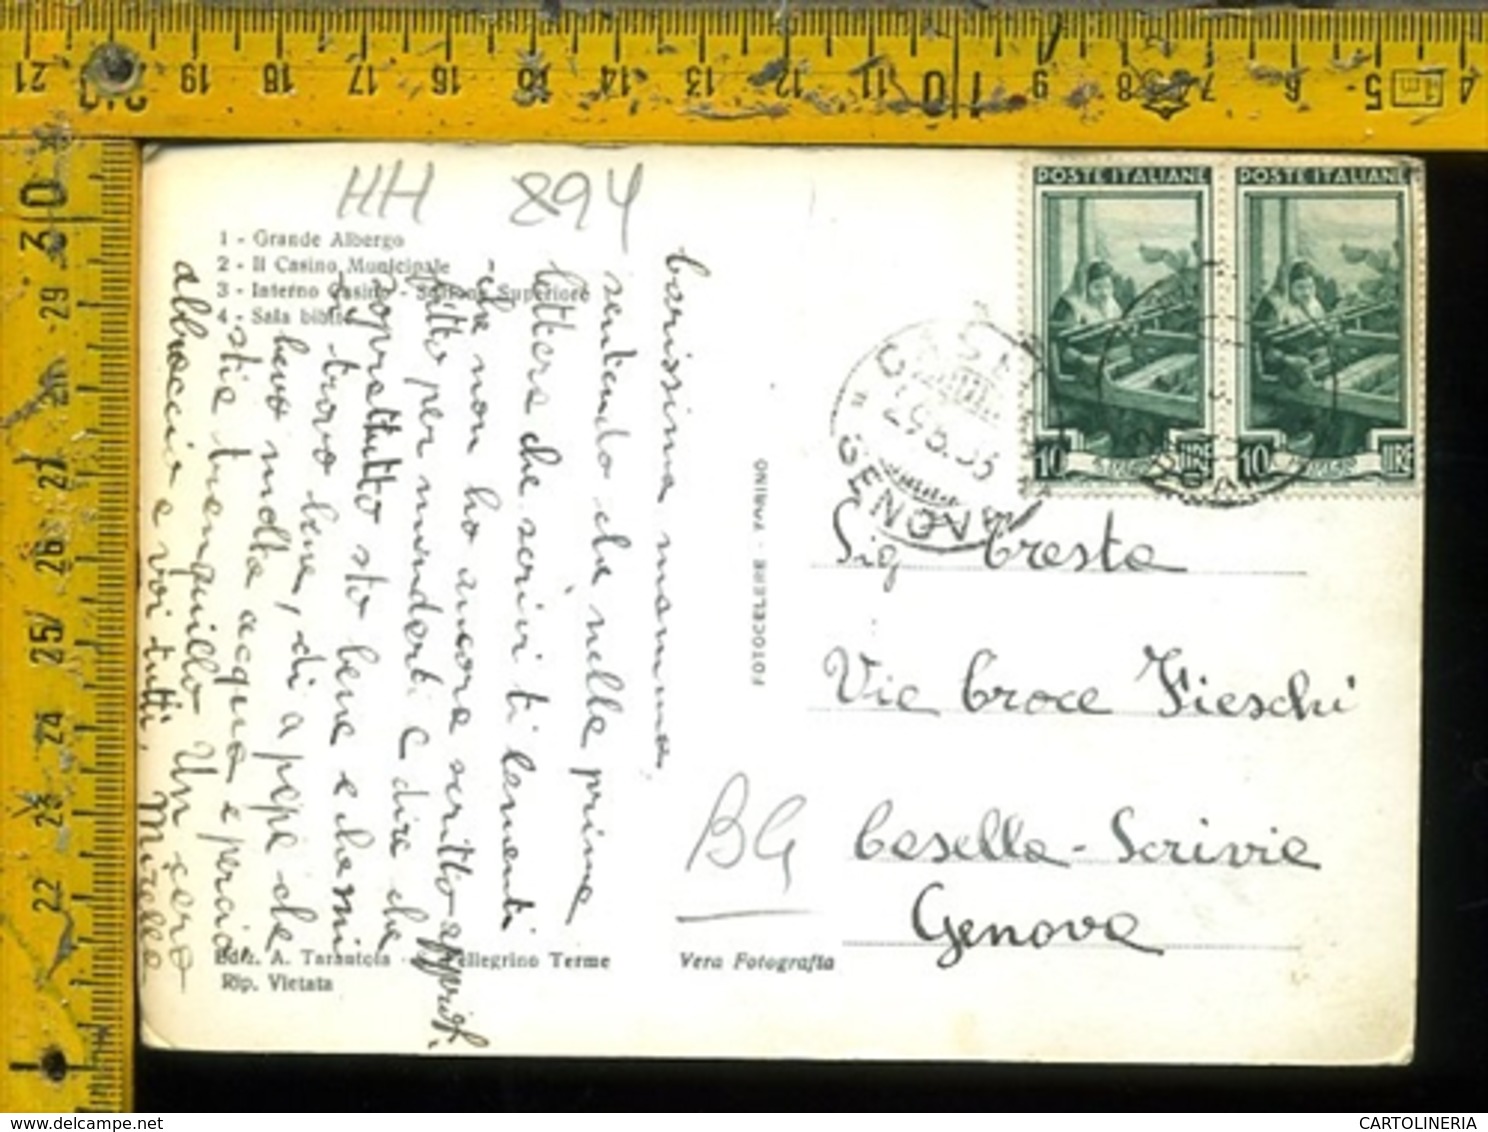 21 20 19 18 17 16 15 14 13 12 11 10 9 8 7 6 5 4
30
29
27
26
25
24
23
22
HH 894
1 - Grande Albergo
2 - Il Casino Municipale
3 - Interno Casino - Salone Superiore
4 - Sala bibite
Carissima mamma,
sentendo che nella prima
lettera che scrivi ti lamenti
che non ho ancora scritto
fitto per mandarti e dire che
sopratutto sto bene e che mi
ci trovo bene, di a papà che
bevo molta acqua e perciò
stia tranquillo Un caro
abbraccio a voi tutti,
Mirella
Ediz. A. Tarantola - S. Pellegrino Terme
Rip. Vietata
Vera Fotografia
FOTOCELERE - TORINO
POSTE ITALIANE
10 LIRE
POSTE ITALIANE
10 LIRE
GENOVA
Sig Cresta
Via Croce Fieschi
Casella - Scrivia
Genova
BG
CARTOLINERIA
delcampe.net